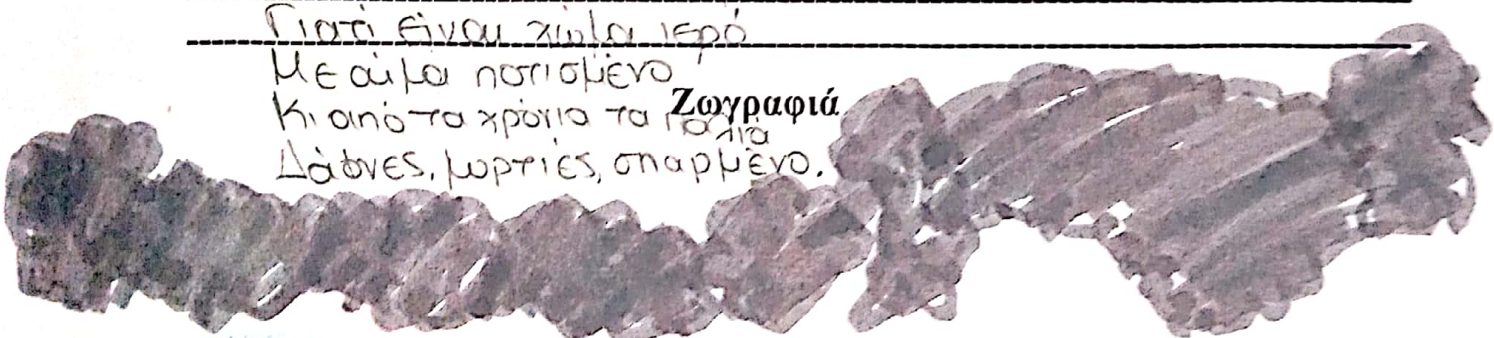 Γιατί είναι χώμα ιερό
Με αίμα ποτισμένο
Κι από τα χρόνια τα παλιά
Ζωγραφιά
Δάφνες, μυρτιές, σπαρμένο.